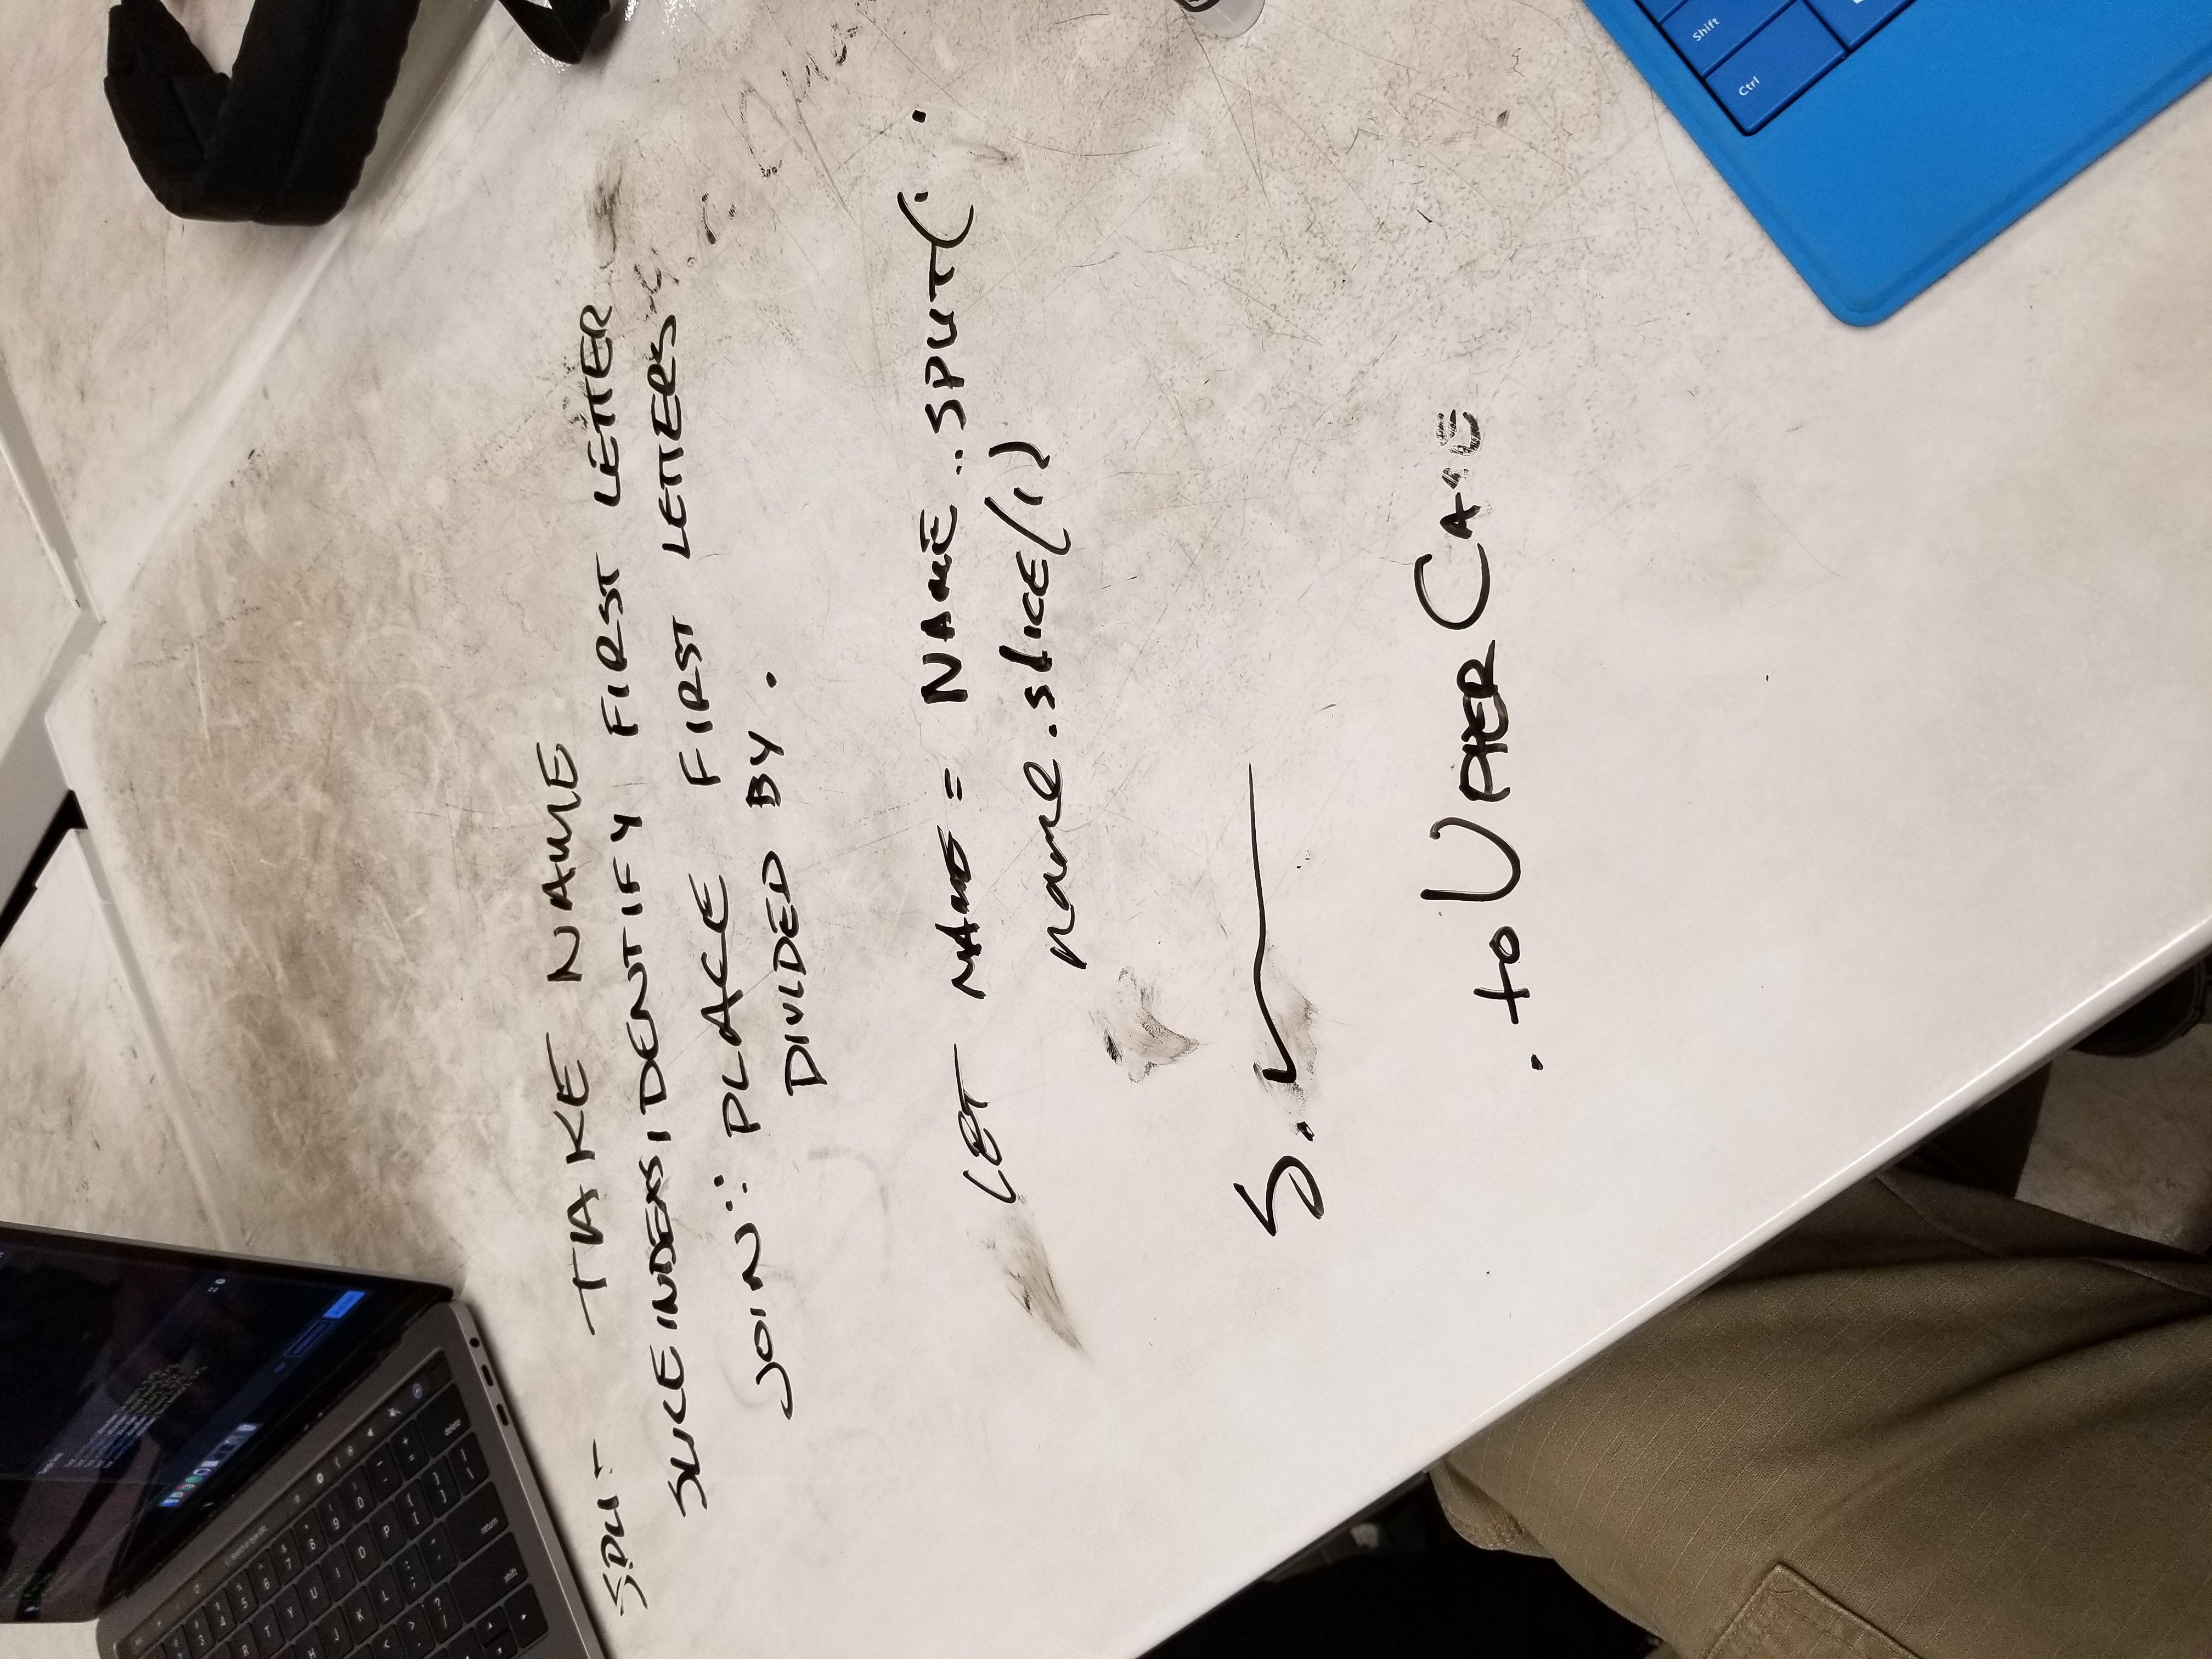 SPLIT TAKE NAME
SLICE INDEXS, IDENTIFY FIRST LETTER
JOIN: PLACE FIRST LETTERS
DIVIDED BY .
LET NAME = NAME..SPLIT(' '
name.slice(1)
S.
.toUPPERCASE
return
shift
delete
Shift
Ctrl